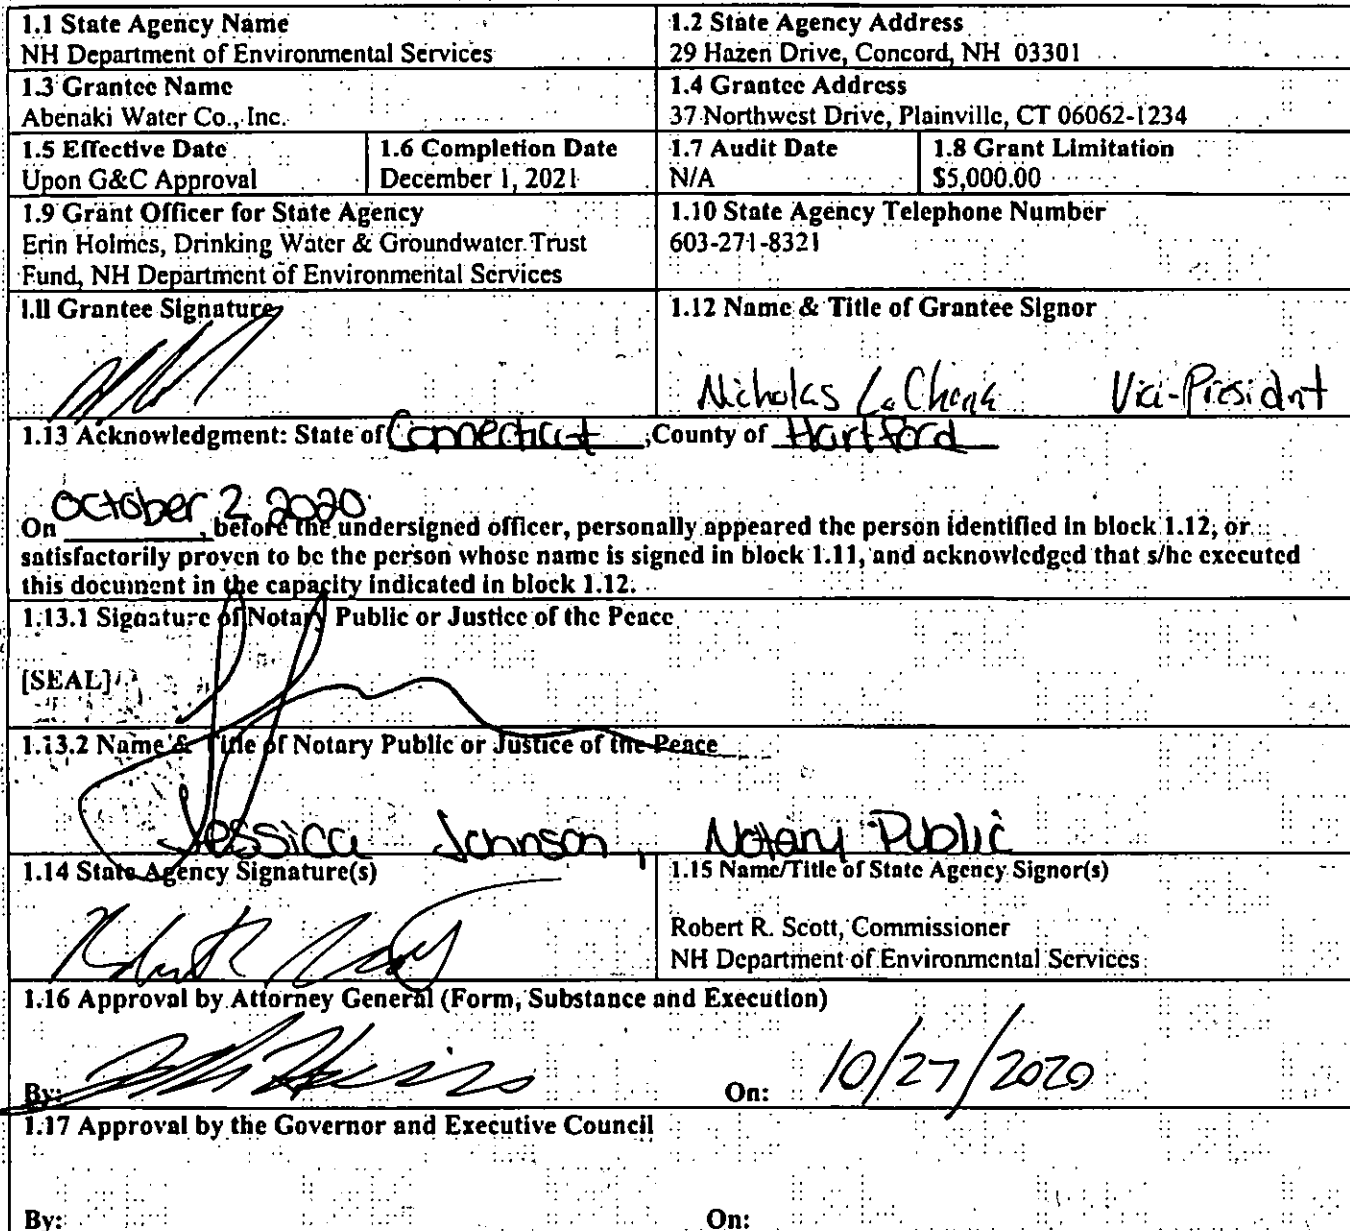 1.1 State Agency Name
NH Department of Environmental Services
1.2 State Agency Address
29 Hazen Drive, Concord, NH 03301
1.3 Grantee Name
Abenaki Water Co., Inc.
1.4 Grantee Address
37 Northwest Drive, Plainville, CT 06062-1234
1.5 Effective Date
Upon G&C Approval
1.6 Completion Date
December 1, 2021
1.7 Audit Date
N/A
1.8 Grant Limitation
$5,000.00
1.9 Grant Officer for State Agency
Erin Holmes, Drinking Water & Groundwater Trust
Fund, NH Department of Environmental Services
1.10 State Agency Telephone Number
603-271-8321
1.11 Grantee Signature
1.12 Name & Title of Grantee Signor
Nicholas LaChance Vice-President
1.13 Acknowledgment: State of Connecticut, County of Hartford
On October 2 2020, before the undersigned officer, personally appeared the person identified in block 1.12, or
satisfactorily proven to be the person whose name is signed in block 1.11, and acknowledged that s/he executed
this document in the capacity indicated in block 1.12.
1.13.1 Signature of Notary Public or Justice of the Peace
[SEAL]
1.13.2 Name & Title of Notary Public or Justice of the Peace
Jessica Johnson, Notary Public
1.14 State Agency Signature(s)
1.15 Name/Title of State Agency Signor(s)
Robert R. Scott, Commissioner
NH Department of Environmental Services
1.16 Approval by Attorney General (Form, Substance and Execution)
By: On: 10/27/2020
1.17 Approval by the Governor and Executive Council
By: On: